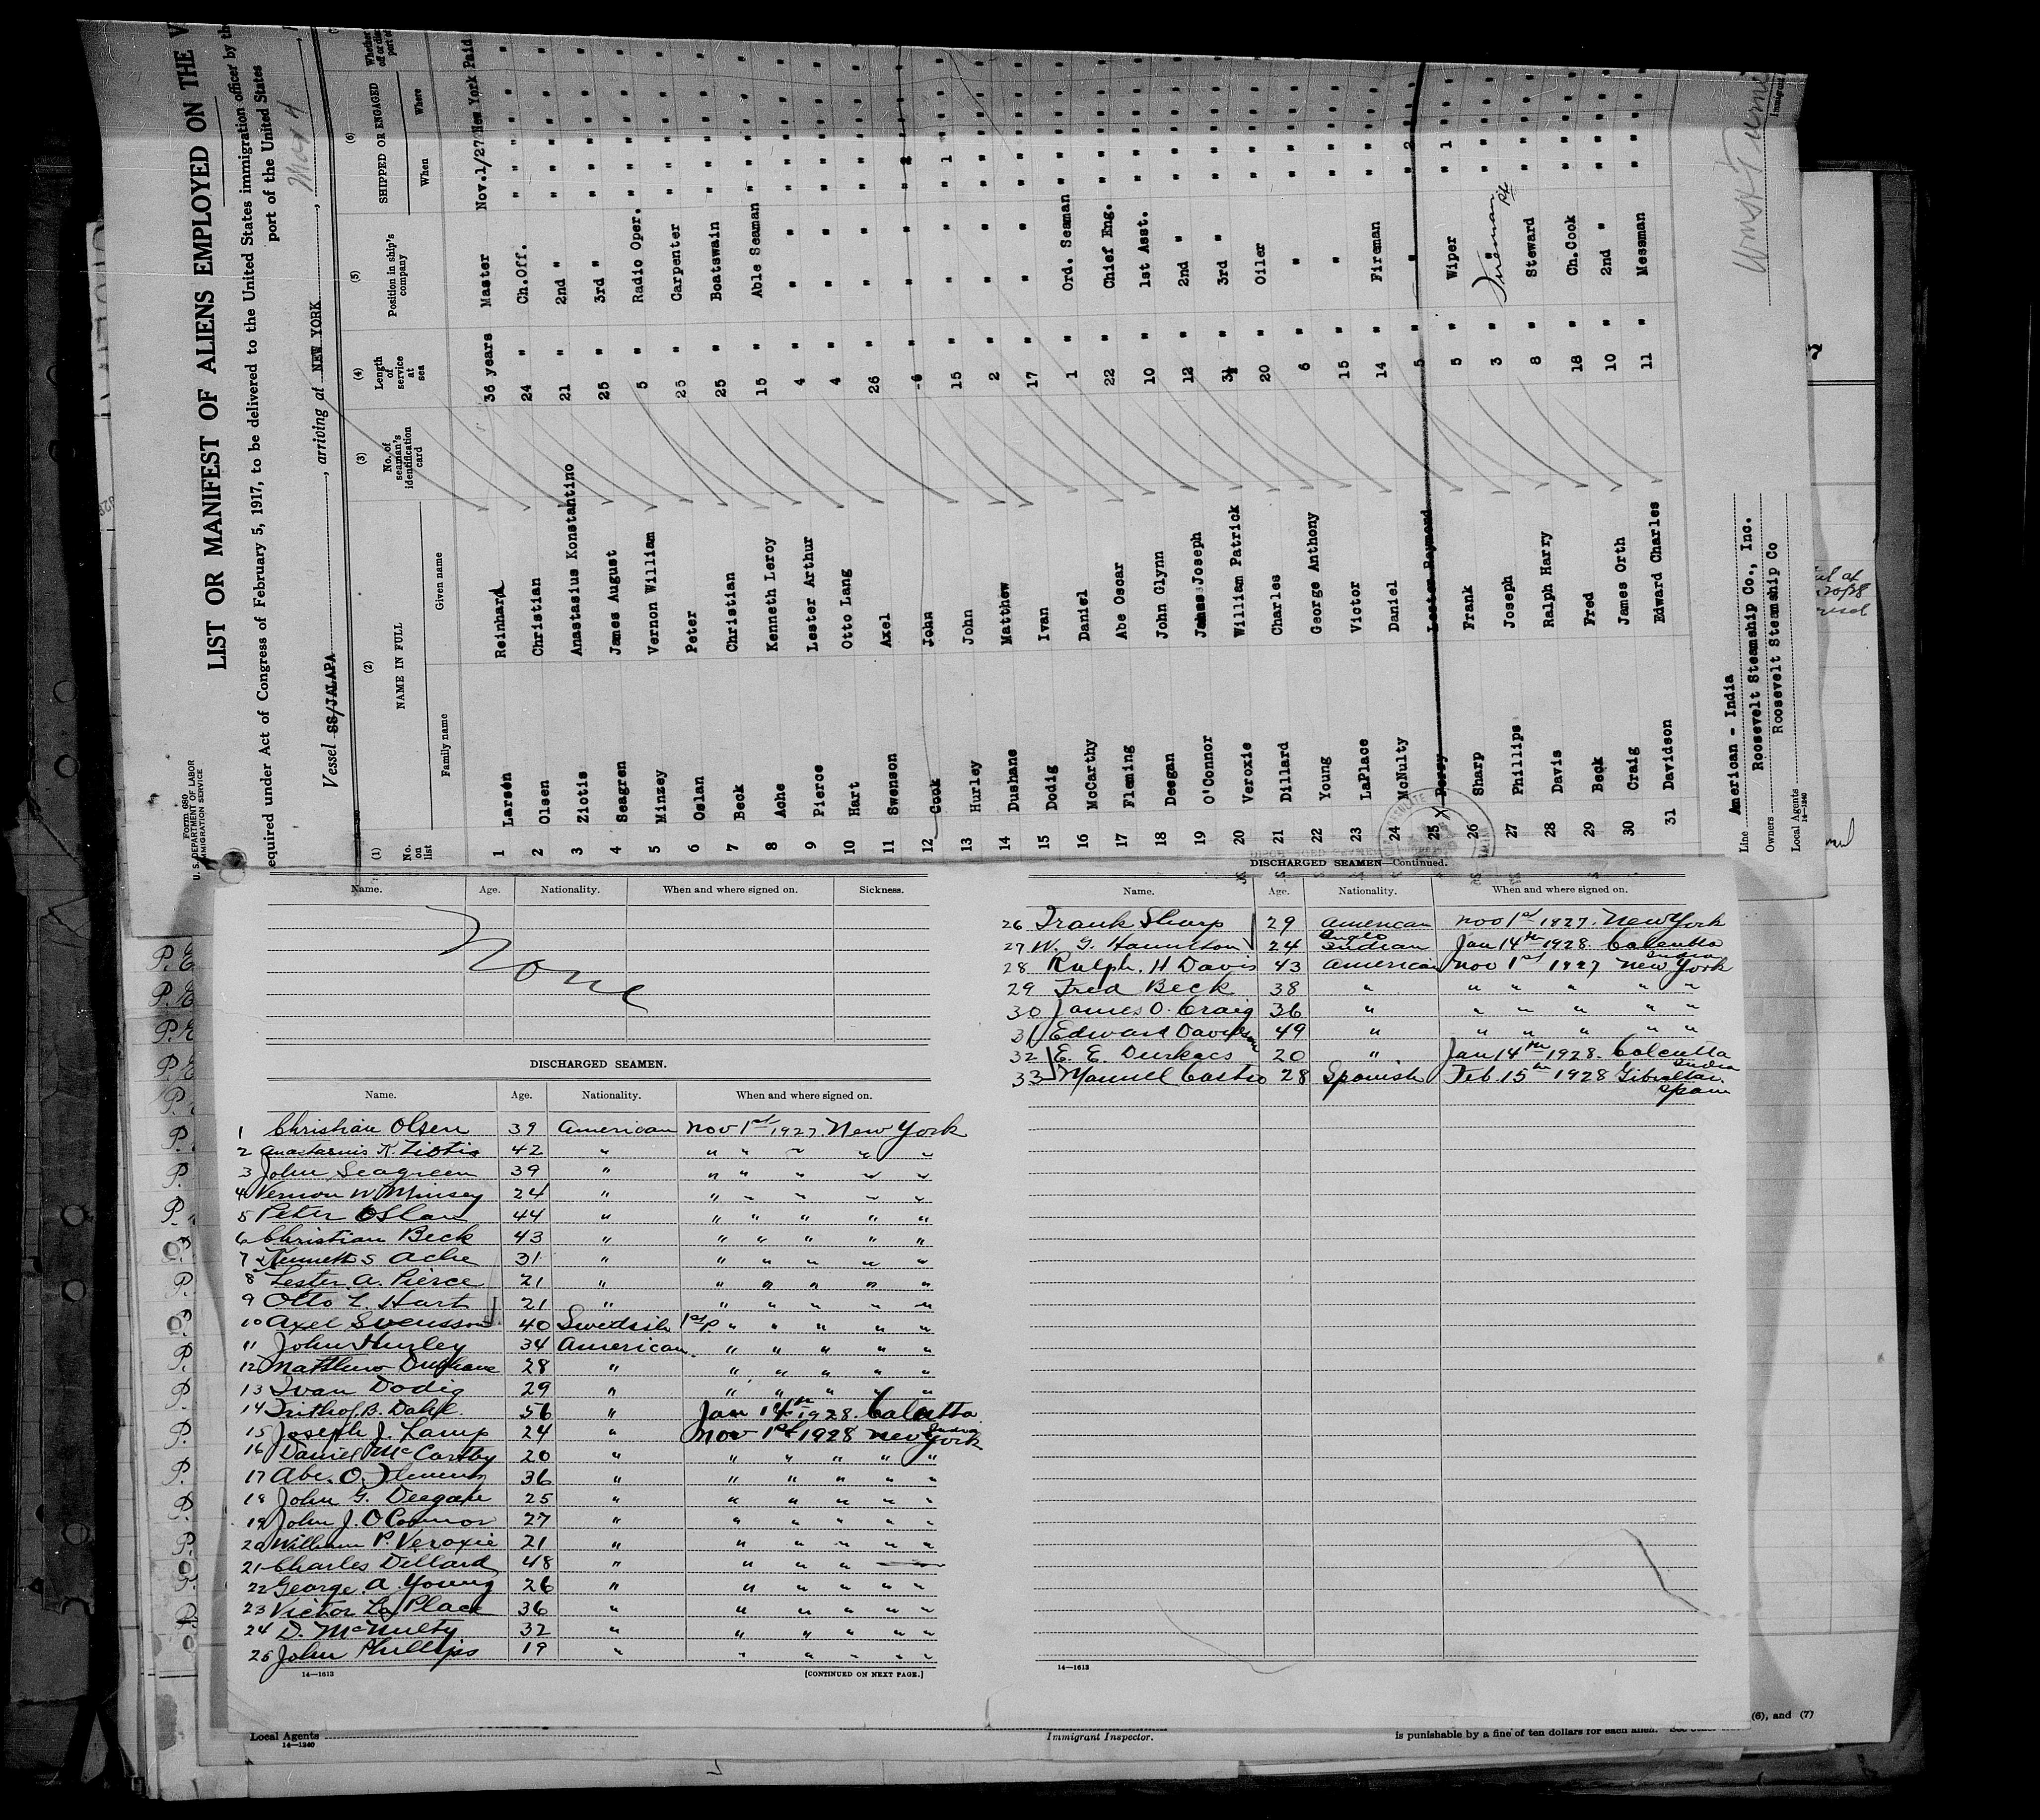 Form 680
U. S. DEPARTMENT OF LABOR
IMMIGRATION SERVICE
LIST OR MANIFEST OF ALIENS EMPLOYED ON THE V
equired under Act of Congress of February 5, 1917, to be delivered to the United States immigration officer by the
port of the United States
Vessel SS/JALAPA, arriving at NEW YORK, Mar 4
(1) (2) (3) (4) (5) (6)
No. on list NAME IN FULL No. of seaman's identification card Length of service at sea Position in ship's company SHIPPED OR ENGAGED
Family name Given name When Where
1 Larsen Reinhard 36 years Master Nov.1/27 New York Paid
2 Olsen Christian 24 " Ch.Off. " " " " "
3 Ziotis Anastasius Konstantino 21 " 2nd " " " " " "
4 Seagren James August 25 " 3rd " " " " " "
5 Minzey Vernon William 5 " Radio Oper. " " " " "
6 Oslan Peter 25 " Carpenter " " " " "
7 Beck Christian 25 " Boatswain " " " " "
8 Ache Kenneth Leroy 15 " Able Seaman " " " " "
9 Pierce Lester Arthur 4 " " " " " " "
10 Hart Otto Lang 4 " " " " " " "
11 Swenson Axel 26 " " " " " " "
12 Cook John 6 " " " 2 " " "
13 Hurley John 15 " " " 1 " " "
14 Dushane Matthew 2 " " " " " " "
15 Dodig Ivan 17 " " " " " " "
16 McCarthy Daniel 1 " Ord. Seaman " " " " "
17 Fleming Abe Oscar 22 " Chief Eng. " " " " "
18 Deegan John Glynn 10 " 1st Asst. " " " " "
19 O'Connor James Joseph 12 " 2nd " " " " " "
20 Veroxie William Patrick 3½ " 3rd " " " " " "
21 Dillard Charles 20 " Oiler " " " " "
22 Young George Anthony 6 " " " " " " "
23 LaPlace Victor 15 " " " " " " "
24 McNulty Daniel 14 " Fireman " " " " "
25 x Persy Lester Raymond 5 " " " 2 " " "
26 Sharp Frank 5 " Wiper " 1 " " "
27 Phillips Joseph 3 " Fireman " " " " "
28 Davis Ralph Harry 8 " Steward " " " " "
29 Beck Fred 18 " Ch.Cook " " " " "
30 Craig James Orth 10 " 2nd " " " " " "
31 Davidson Edward Charles 11 " Messman " " " " "
Line American - India
Owners Roosevelt Steamship Co., Inc.
Local Agents Roosevelt Steamship Co
14—1240
Name. Age. Nationality. When and where signed on. Sickness.
None
DISCHARGED SEAMEN.
Name. Age. Nationality. When and where signed on.
1 Christian Olsen 39 American Nov 1st 1927. New York
2 Anastasius K. Ziotis 42 " " " " " "
3 John Seagreen 39 " " " " " "
4 Vernon W Minsey 24 " " " " " "
5 Peter Oslan 44 " " " " " "
6 Christian Beck 43 " " " " " "
7 Kenneth S Ache 31 " " " " " "
8 Lester A. Pierce 21 " " " " " "
9 Otto L. Hart 21 " " " " " "
10 Axel Svensson 40 Swedish 1st p. " " " " "
11 John Hurley 34 American " " " " "
12 Matthew Dushane 28 " " " " " "
13 Ivan Dodig 29 " " " " " "
14 Frithof B. Dahl 56 " Jan 14th 1928. Calcutta India
15 Joseph J. Lamp 24 " Nov 1st 1928 New York
16 Daniel McCarthy 20 " " " " " "
17 Abe. O. Fleming 36 " " " " " "
18 John G. Deegan 25 " " " " " "
19 John J. O Connor 27 " " " " " "
20 William P. Veroxie 21 " " " " " "
21 Charles Dillard 48 " " " "
22 George. A Young 26 " " " " " "
23 Victor La Place 36 " " " " " "
24 D. McNulty 32 " " " " " "
25 John Phillips 19 " " " " " "
14—1613 [CONTINUED ON NEXT PAGE.]
DISCHARGED SEAMEN—Continued.
Name. Age. Nationality. When and where signed on.
26 Frank Sharp 29 American Nov 1st 1927. New York
27 W. G. 24 Anglo Indian Jan 14th 1928 Calcutta India
28 Ralph. H Davis 43 American Nov 1st 1927 New York
29 Fred Beck 38 " " " " " "
30 James O. Craig 36 " " " " " "
31 Edward Davidson 49 " " " " " "
32 E. E. Durkacs 20 " Jan 14th 1928. Calcutta India
33 Manuel Castro 28 Spanish Feb. 15th 1928 Gibraltar. Spain
14—1613
Local Agents
14—1240
Immigrant Inspector.
is punishable by a fine of ten dollars for each alien.
(6), and (7)